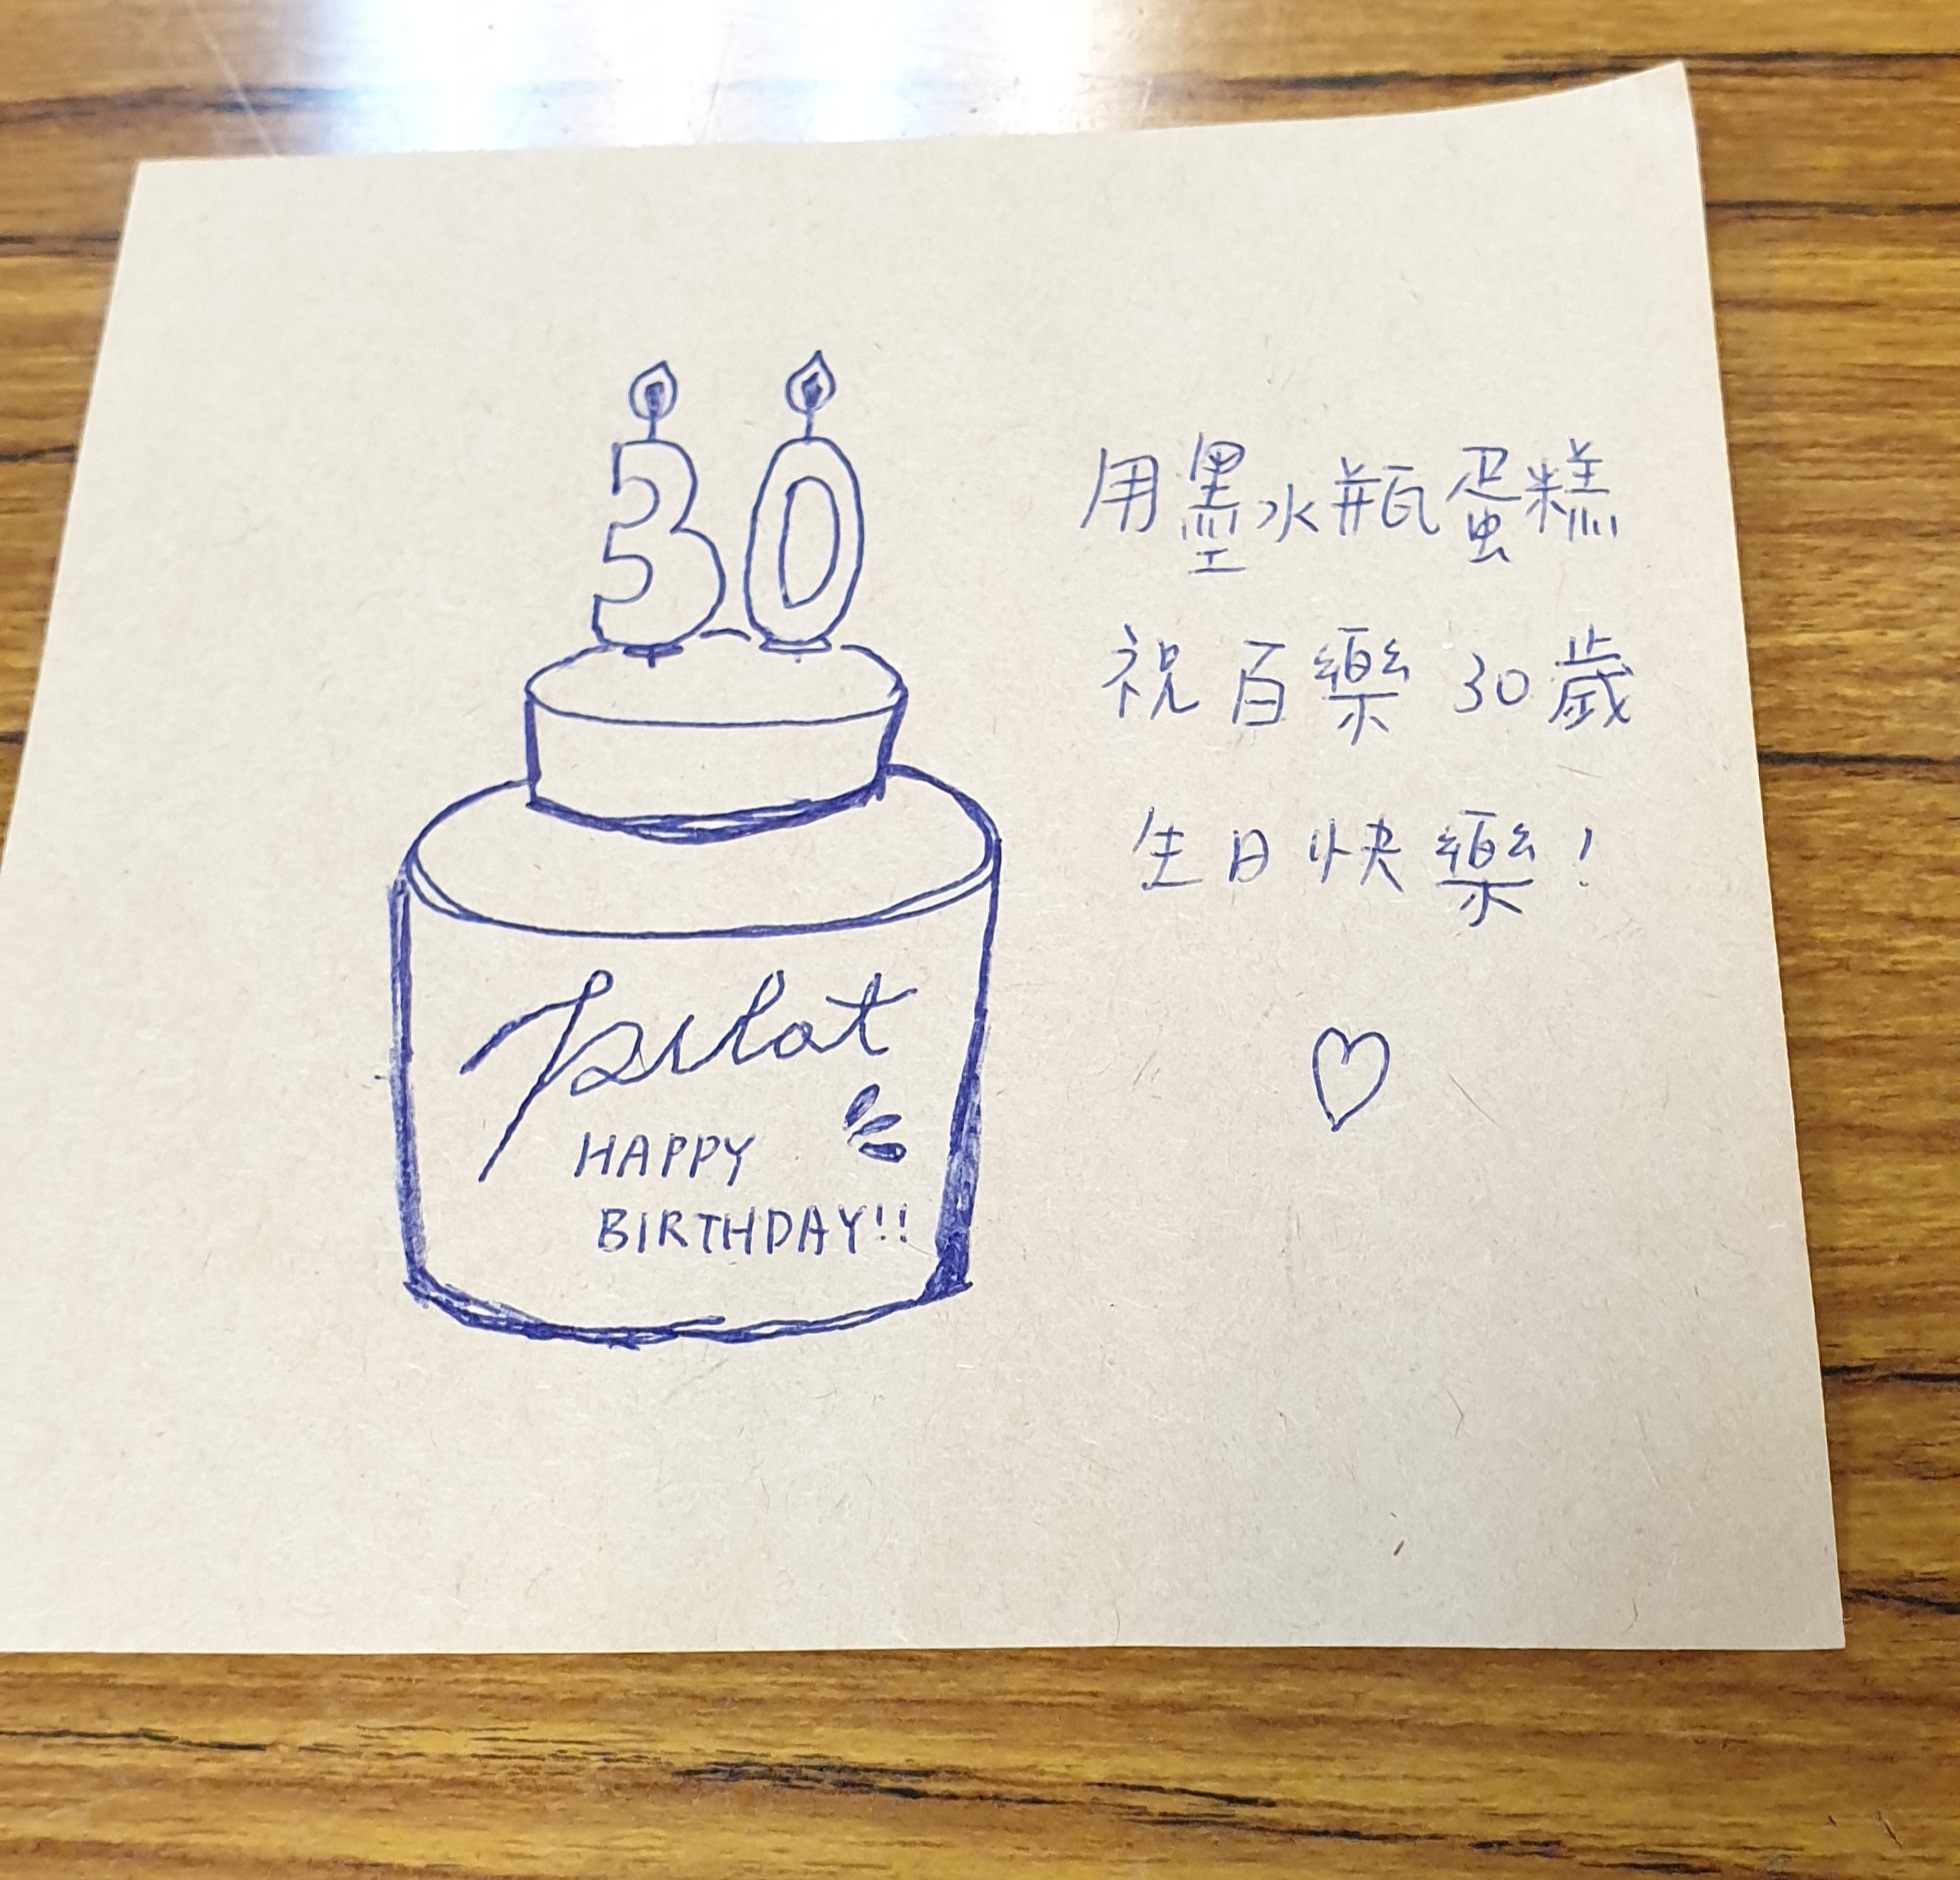 30
用墨水瓶蛋糕
祝百樂30歲
生日快樂!
Pilot
HAPPY
BIRTHDAY!!